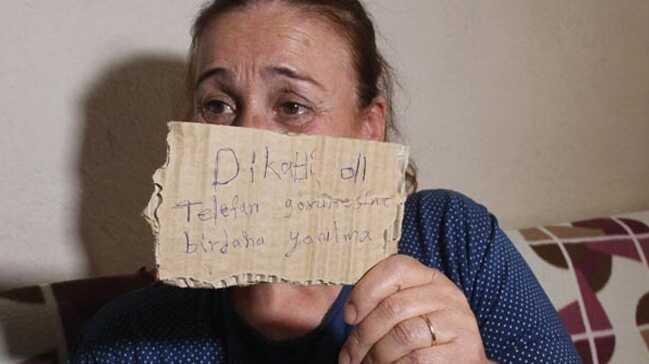 Dikatli ol
Telefan görümesine
birdaha yanılma